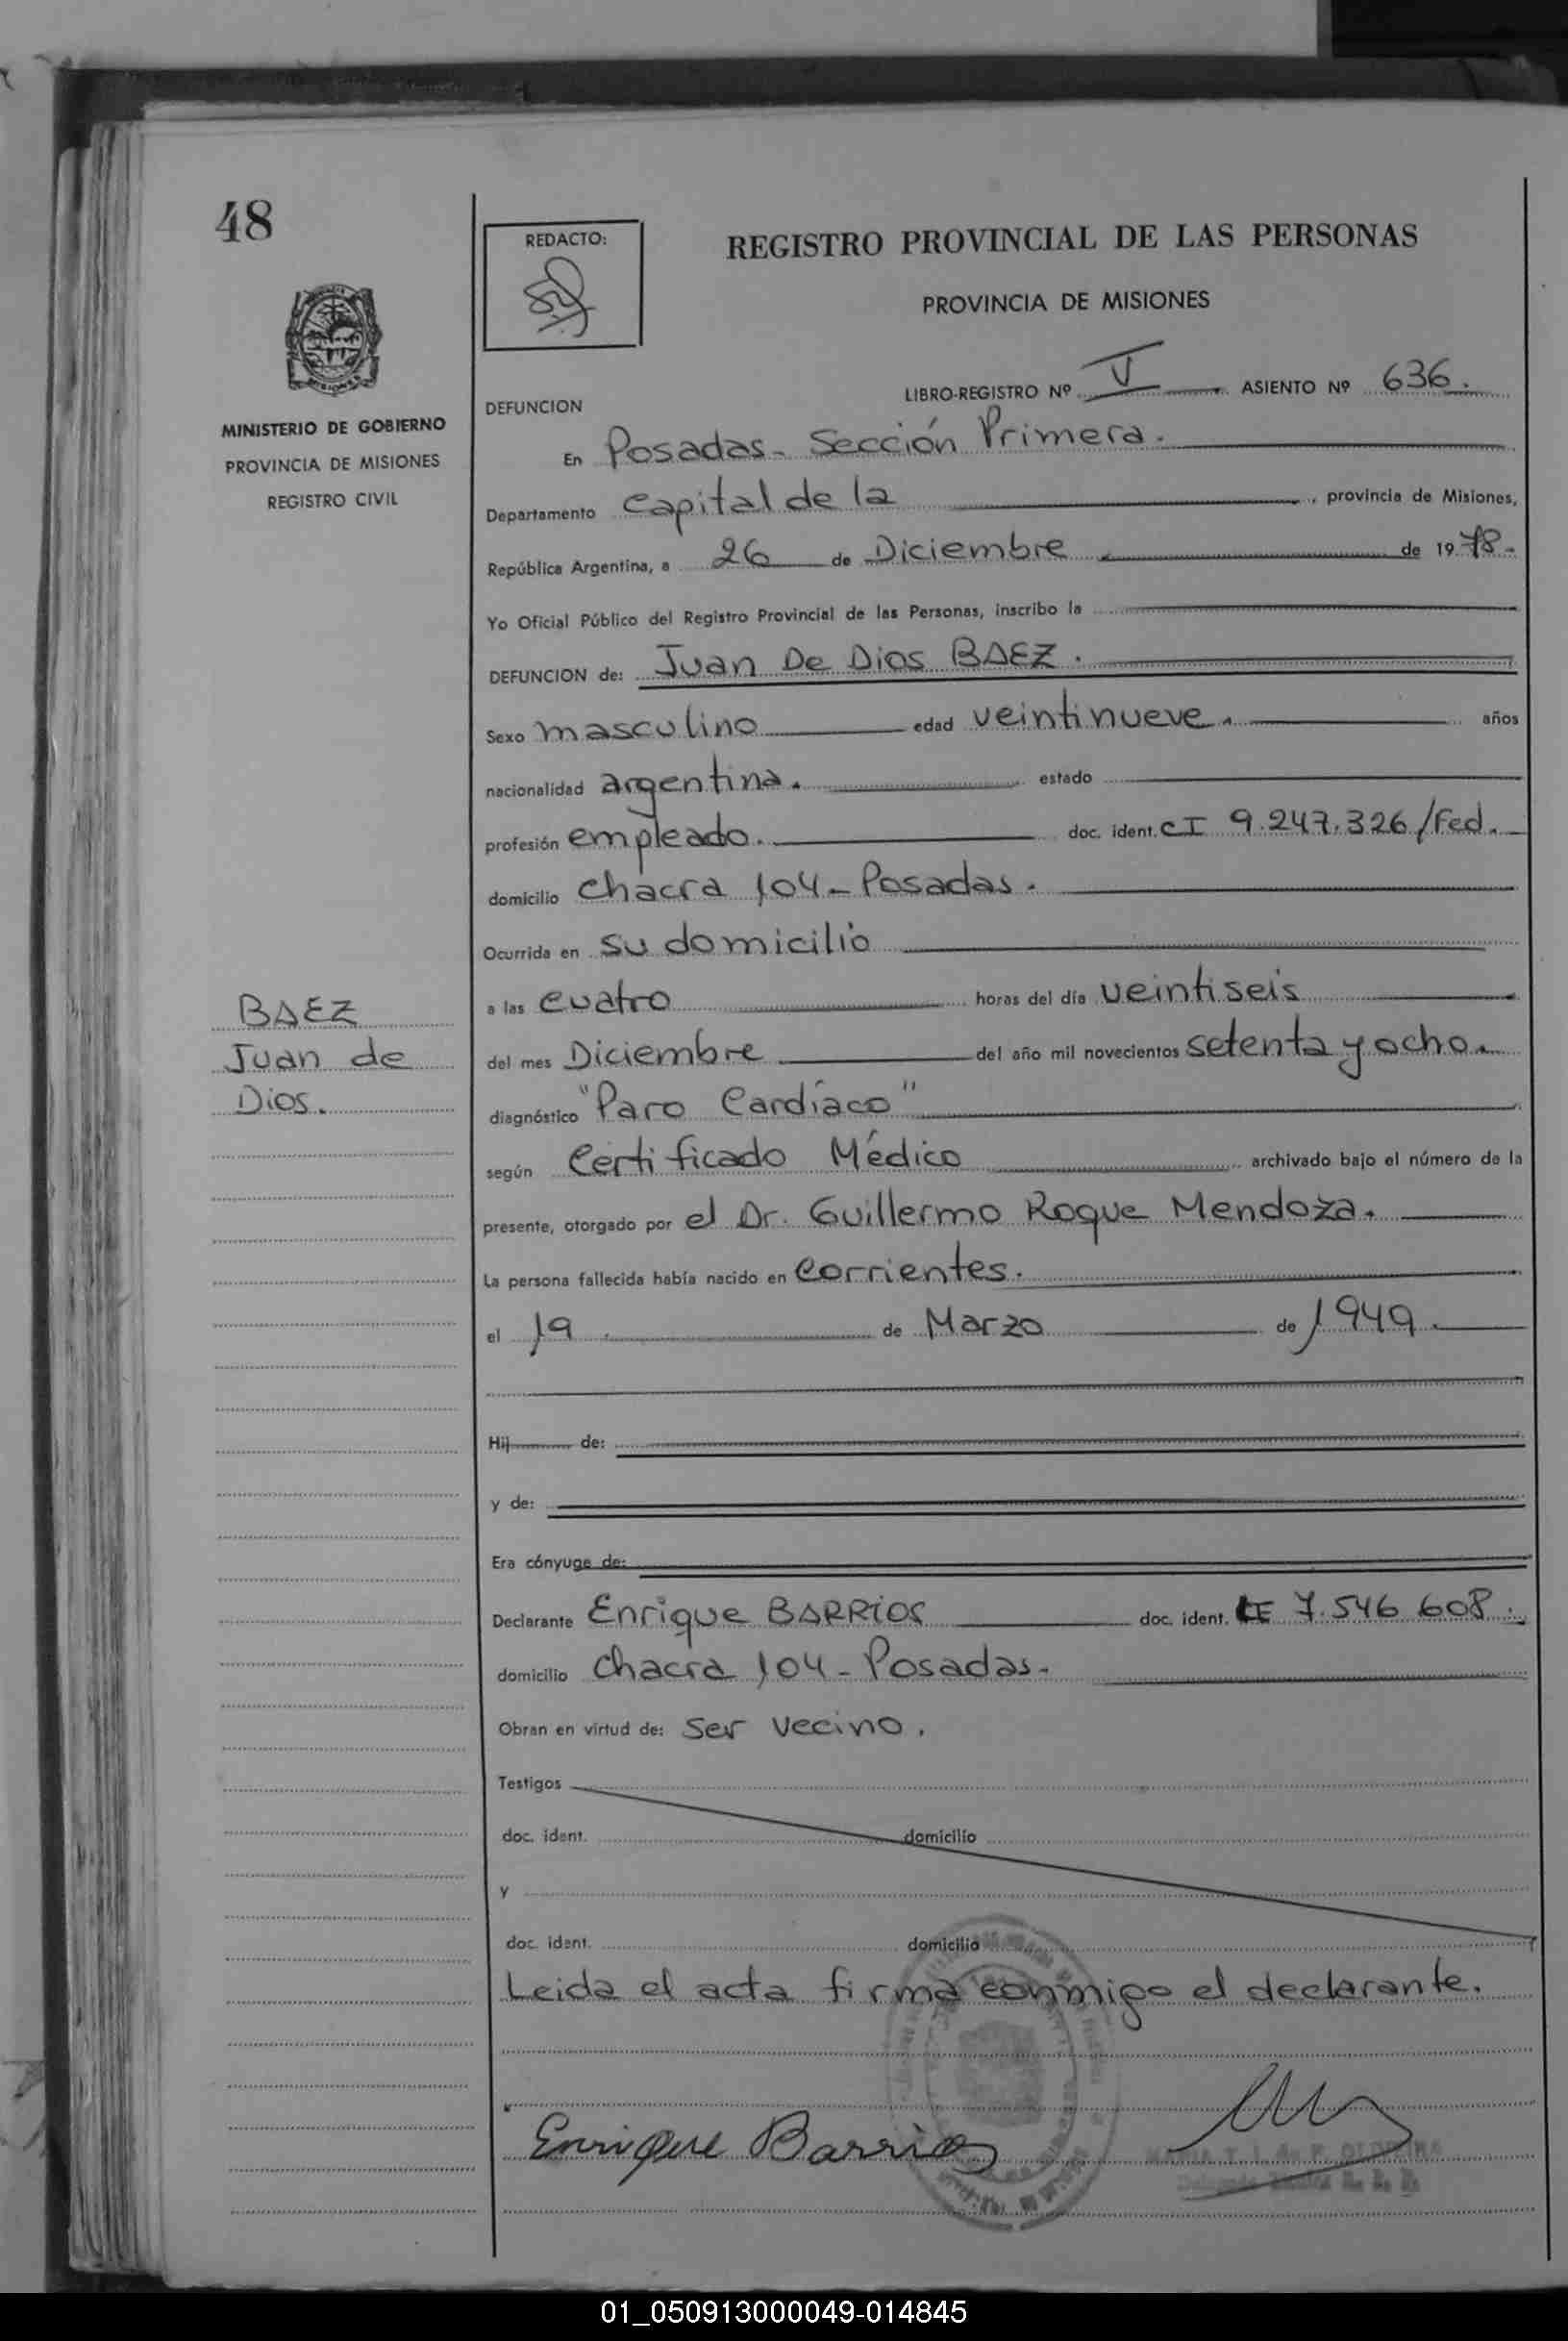 48
REDACTO:
REGISTRO PROVINCIAL DE LAS PERSONAS
PROVINCIA DE MISIONES
MISIONES
MINISTERIO DE GOBIERNO
PROVINCIA DE MISIONES
REGISTRO CIVIL
LIBRO-REGISTRO Nº V ASIENTO Nº 636.
DEFUNCION
En Posadas - Sección Primera.
Departamento Capital de la , provincia de Misiones,
República Argentina, a 26 de Diciembre de 1978.-
Yo Oficial Público del Registro Provincial de las Personas, inscribo la
DEFUNCION de: Juan De Dios BAEZ.
Sexo masculino edad veintinueve. años
nacionalidad argentina. estado
profesión empleado. doc. ident. CI 9.247.326/Fed.
domicilio chacra 104 - Posadas.
Ocurrida en su domicilio
a las cuatro horas del día veintiseis
del mes Diciembre del año mil novecientos setenta y ocho.
diagnóstico "Paro Cardíaco"
según Certificado Médico archivado bajo el número de la
presente, otorgado por el Dr. Guillermo Roque Mendoza.
La persona fallecida había nacido en Corrientes.
el 19 de Marzo de 1949.
Hij de:
y de:
Era cónyuge de:
Declarante Enrique BARRIOS doc. ident. LE 7.546 608.
domicilio chacra 104 - Posadas.
Obran en virtud de: ser vecino.
Testigos
doc. ident. domicilio
y
doc. ident. domicilio
Leida el acta firma conmigo el declarante.
Enrique Barrios
BAEZ
Juan de
Dios.
01_050913000049-014845